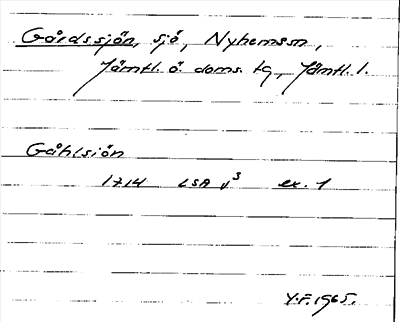 Gårdssjön, sjö, Nyhemssn,
Jämtl. ö. doms. tg, Jämtl. l.
Gåhlsiön
1714 LSA v³ ex. 1
Y.F. 1965.